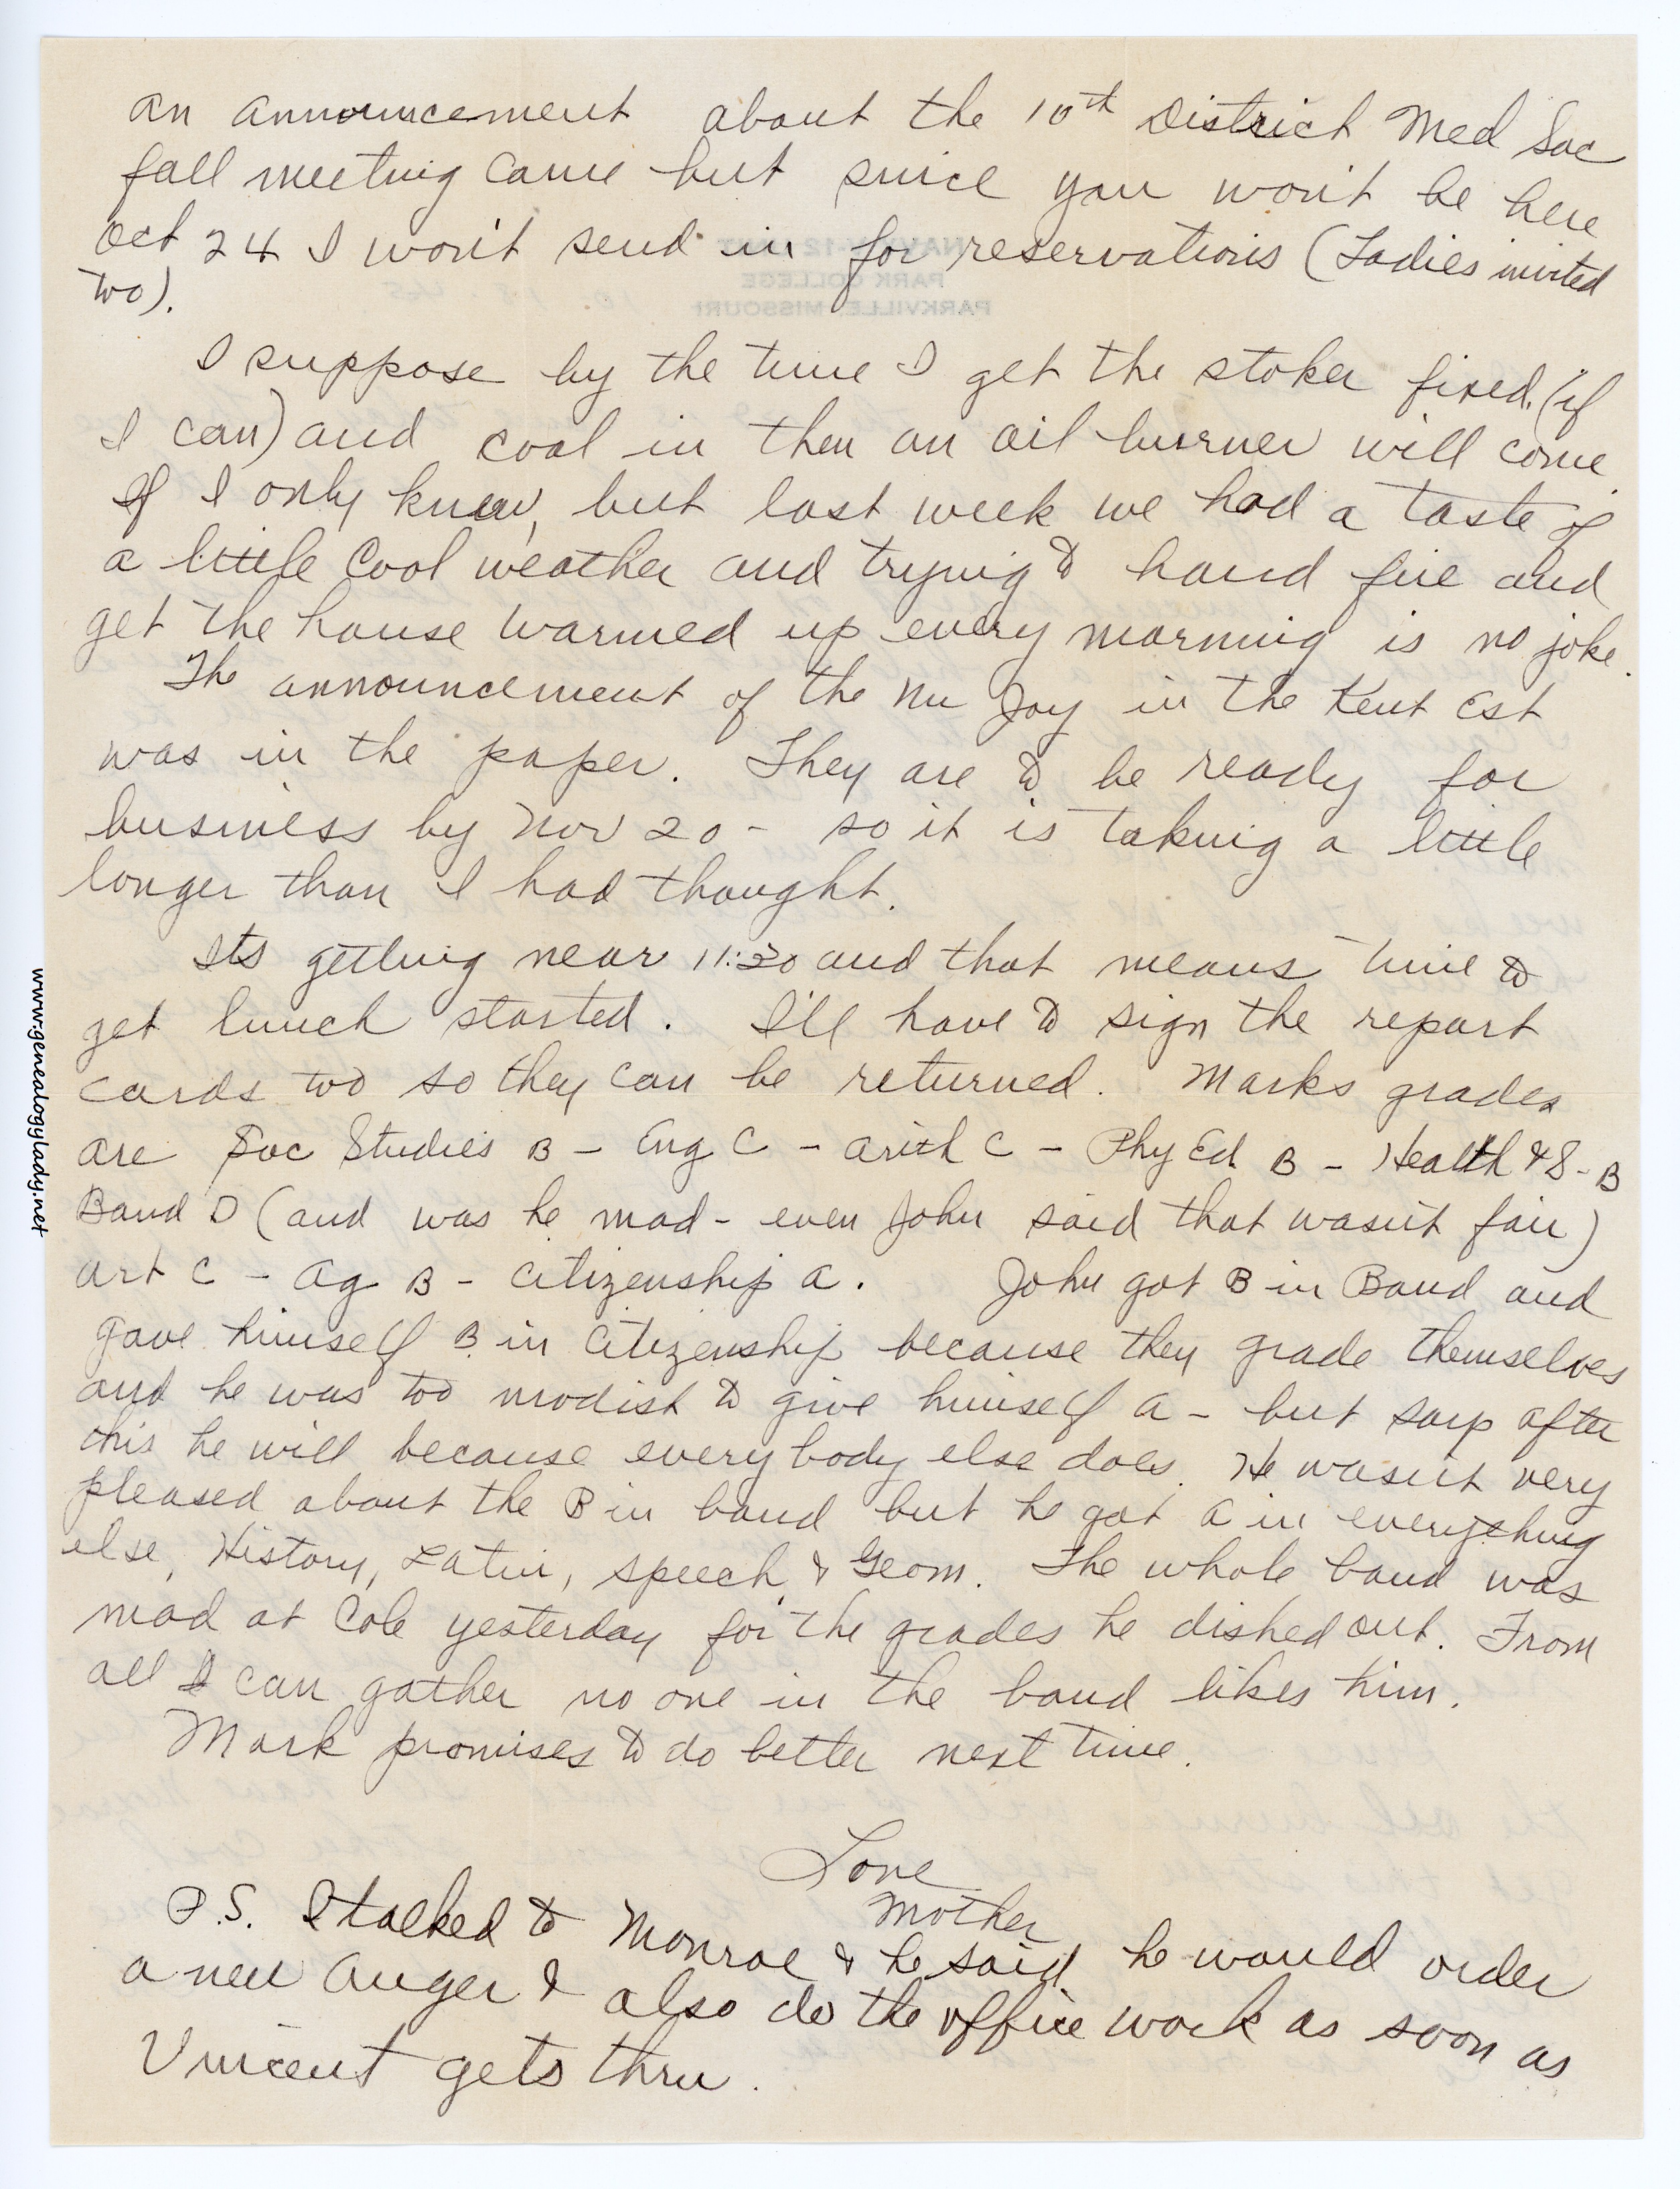 An announcement about the 10th District Med Soc
fall meeting came but since you won't be here
Oct 24 I won't send in for reservations (Ladies invited
two).
I suppose by the time I get the stoker fixed (if
I can) and coal in then an oil burner will come.
If I only knew, but last week we had a taste of
a little cool weather and trying to hand fire and
get the house warmed up every morning is no joke.
The announcement of the Nu Joy in the Kent Est
was in the paper. They are to be ready for
business by Nov 20 - so it is taking a little
longer than I had thought.
Its getting near 11:30 and that means time to
get lunch started. I'll have to sign the report
cards two so they can be returned. Marks grades
are Soc Studies B - Eng C - Arith C - Phy Ed B - Health & S - B
Band D (and was he mad - even John said that wasn't fair)
Art C - Ag B - Citizenship A. John got B in Band and
gave himself B in Citizenship because they grade themselves
and he was too modist to give himself A - but says after
this he will because everybody else does. He wasn't very
pleased about the B in band but he got A in everything
else, History, Latin, speech & Geom. The whole band was
mad at Cole yesterday for the grades he dished out. From
all I can gather no one in the band likes him.
Mark promises to do better next time.
Love
Mother
P.S. I talked to Monroe & he said he would order
a new auger & also do the office work as soon as
Vincent gets thru.
www.genealogylady.net
NAVY V-12 UNIT
PARK COLLEGE
PARKVILLE, MISSOURI